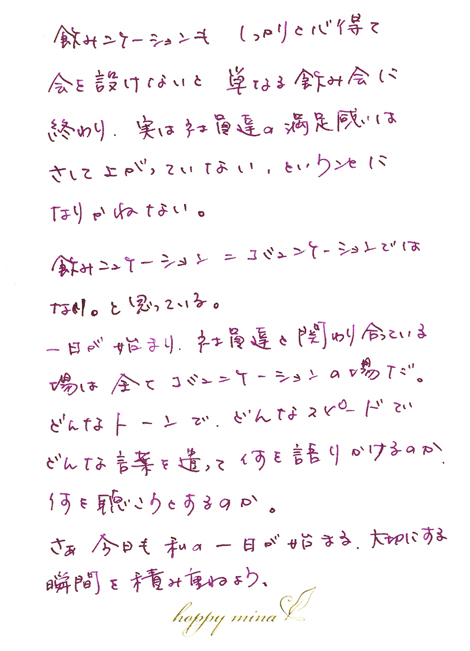 飲みニケーションも しっかりと心得て
会を設けないと 単なる飲み会に
終わり、実は社員達の満足感は
さして上がっていない、ということに
なりかねない。
飲みニュケーション=コミュニケーションでは
ない。と思っている。
一日が始まり、社員達と関わり合っている
場は全てコミュニケーションの場だ。
どんなトーンで、どんなスピードで
どんな言葉を遣って何を語りかけるのか、
何を聴こうとするのか。
さぁ今日も私の一日が始まる、大切にする
瞬間を積み重ねよう。
happy mina